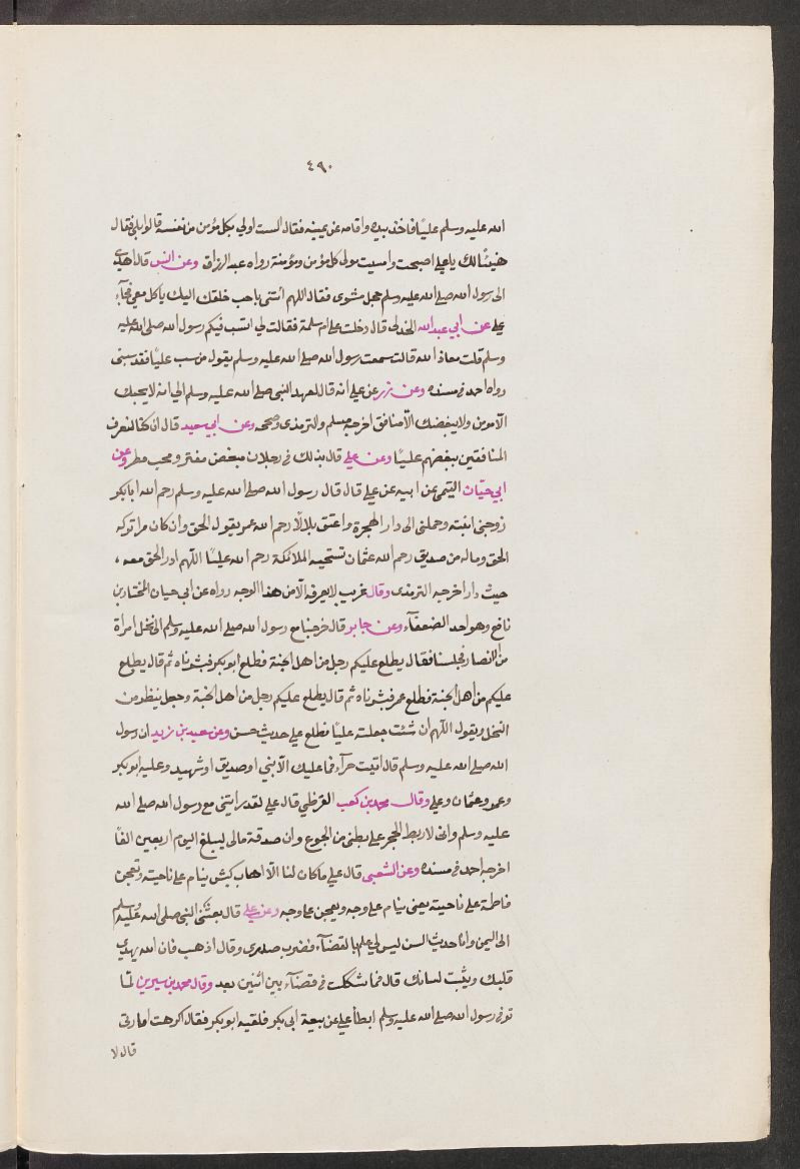 ٤٩٠
الله عليه وسلم عليًا فاخذ بيده واقامه عن يمينه فقال الست اولي بكل مؤمن من نفسه قالوا بلى فقال
هنيئًا لك يا علي اصبحت وامسيت مولى كل مؤمن ومؤمنة رواه عبد الرزاق وعن انس قال اهدي
الى رسول الله صلى الله عليه وسلم حجل مشوي فقال اللهم ائتني باحب خلقك اليك ياكل معي فجآء
علي عن ابي عبد الله الجدلي قال دخلت على ام سلمة فقالت لي ايسب فيكم رسول الله صلى الله عليه
وسلم قلت معاذ الله قالت سمعت رسول الله صلى الله عليه وسلم يقول من سب عليًا فقد سبني
رواه احمد في مسنده وعن زر عن علي انه قال لعهد النبي صلى الله عليه وسلم الي انه لا يحبك
الا مومن ولا يبغضك الا منافق اخرجه مسلم والترمذي وصححه وعن ابي سعيد قال ان كنا لنعرف
المنافقين ببغضهم عليًا وعن علي قال يهلك في رجلان مبغض مفتر ومحب مطر وعن
ابي حيان التيمي عن ابيه عن علي قال قال رسول الله صلى الله عليه وسلم رحم الله ابا بكر
زوجني ابنته وحملني الى دار الهجرة واعتق بلالًا رحم الله عمر يقول الحق وان كان مرا تركه
الحق وماله من صديق رحم الله عثمان تستحيه الملائكة رحم الله عليًا اللهم ادر الحق معه ،
حيث دار اخرجه الترمذي وقال غريب لا يعرفه الا من هذا الوجه رواه عن ابي حيان المختار بن
نافع وهو احد الضعفآء وعن جابر قال خرجنا مع رسول الله صلى الله عليه وسلم الى نخل امرأة
من الانصار فجلسنا فقال يطلع عليكم رجل من اهل الجنة فطلع ابو بكر فبشرناه ثم قال يطلع
عليكم من اهل الجنة فطلع عمر فبشرناه ثم قال يطلع عليكم رجل من اهل الجنة وجعل ينظر من
النخل ويقول اللهم ان شئت جعلته عليًا فطلع علي حديث حسن وعن سعيد بن زيد ان رسول
الله صلى الله عليه وسلم قال اثبت حرآء فما عليك الا نبي او صديق او شهيد وعليه ابو بكر
وعمر وعثمان وعلي وقال محمد بن كعب القرظي قال علي لقد رايتني مع رسول الله صلى الله
عليه وسلم واني لاربط الحجر على بطني من الجوع وان صدقة مالي ليبلغ اليوم اربعين الفًا
اخرجه احمد في مسنده وعن الشعبي قال علي ما كان لنا الا اهاب كبش ينام على ناحيته وتعجن
فاطمة على ناحيته يعني ينام على وجه ويعجن على وجه وعن علي قال بعثني النبي صلى الله عليه وسلم
الى اليمن وانا حديث السن ليس لي علم بالقضآء فضرب صدري وقال اذهب فان الله يهدي
قلبك ويثبت لسانك قال فما شككت في قضآء بين اثنين بعد وقال محمد بن سيرين لما
توفي رسول الله صلى الله عليه وسلم ابطأ علي عن بيعة ابي بكر فلقيه ابو بكر فقال اكرهت امارتي
قال لا